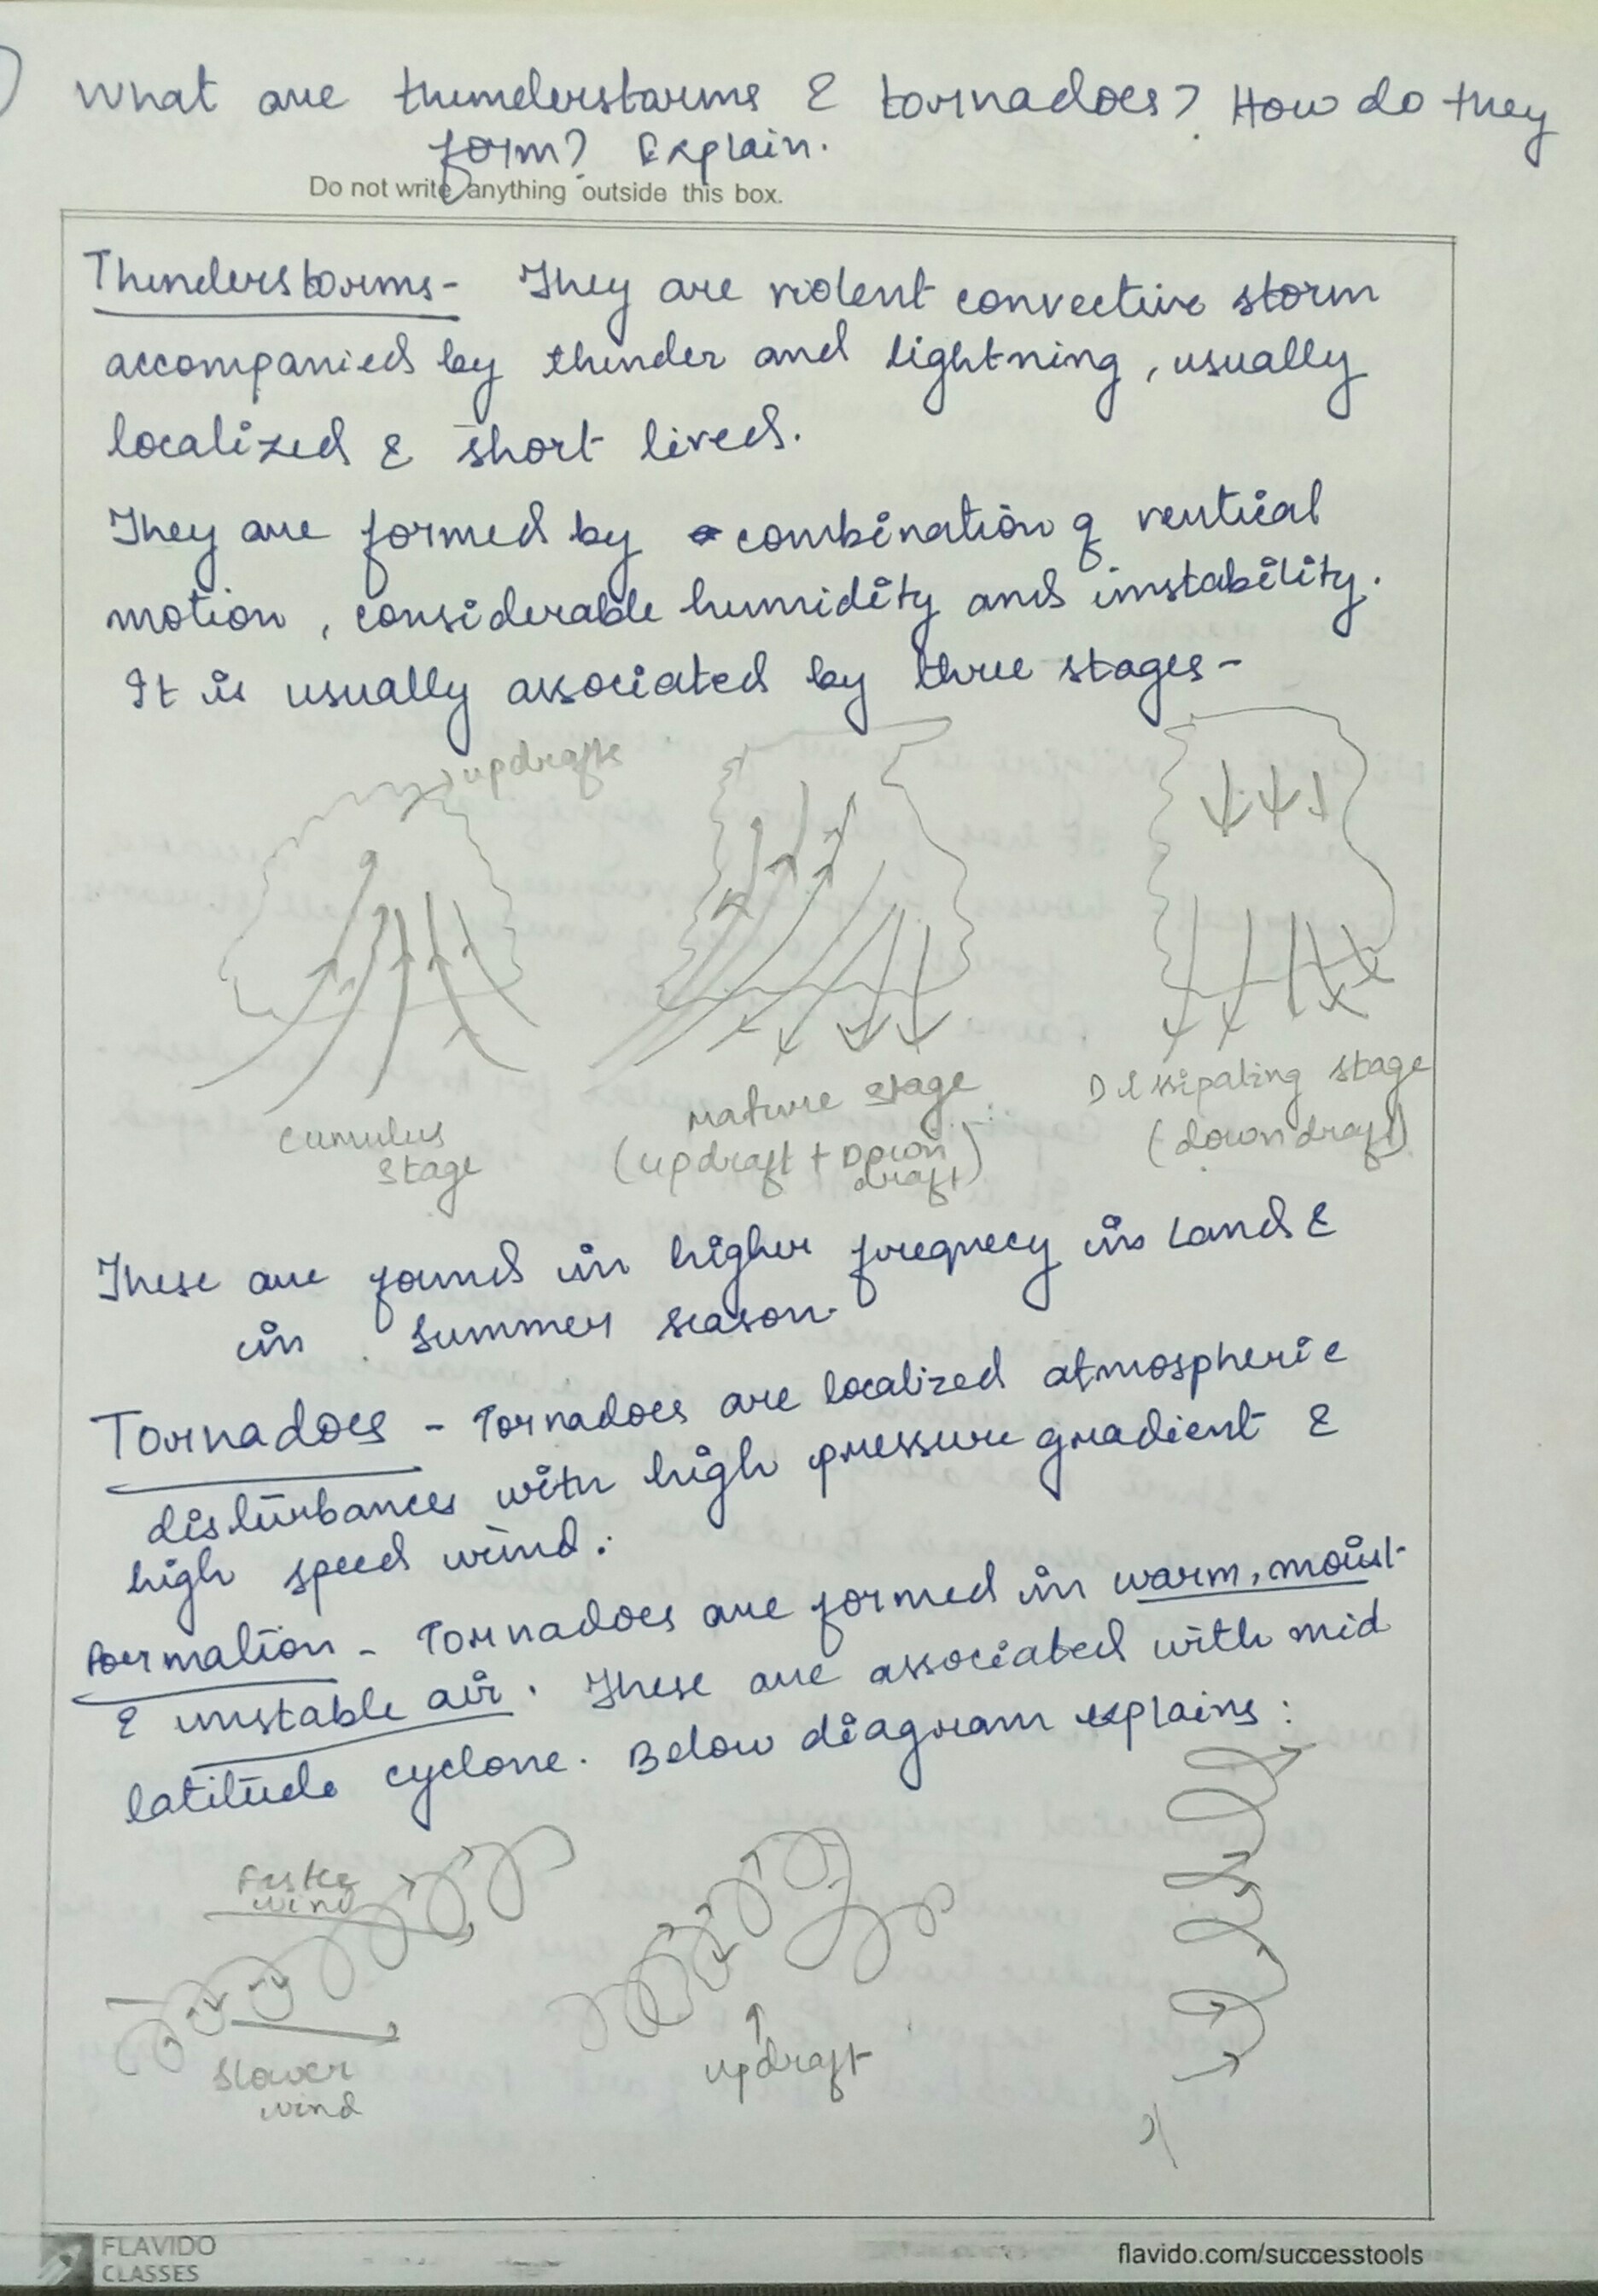 What are thunderstorms & tornadoes? How do they
form? Explain.
Do not write anything outside this box.
Thunderstorms- They are violent convective storm
accompanied by thunder and lightning, usually
localized & short lived.
They are formed by combination of vertical
motion, considerable humidity and instability.
It is usually associated by three stages-
updrafts
Cumulus
stage
Mature stage
(updraft + Down
draft)
Dissipating stage
(downdraft)
These are found in higher freqnecy in Land &
in summer season.
Tornadoes - Tornadoes are localized atmospheric
disturbances with high pressure gradient &
high speed wind.
Formation - Tornadoes are formed in warm, moist
& unstable air. These are associated with mid
latitude cyclone. Below diagram explains:
wind
Slower
wind
updraft
FLAVIDO
CLASSES
flavido.com/successtools